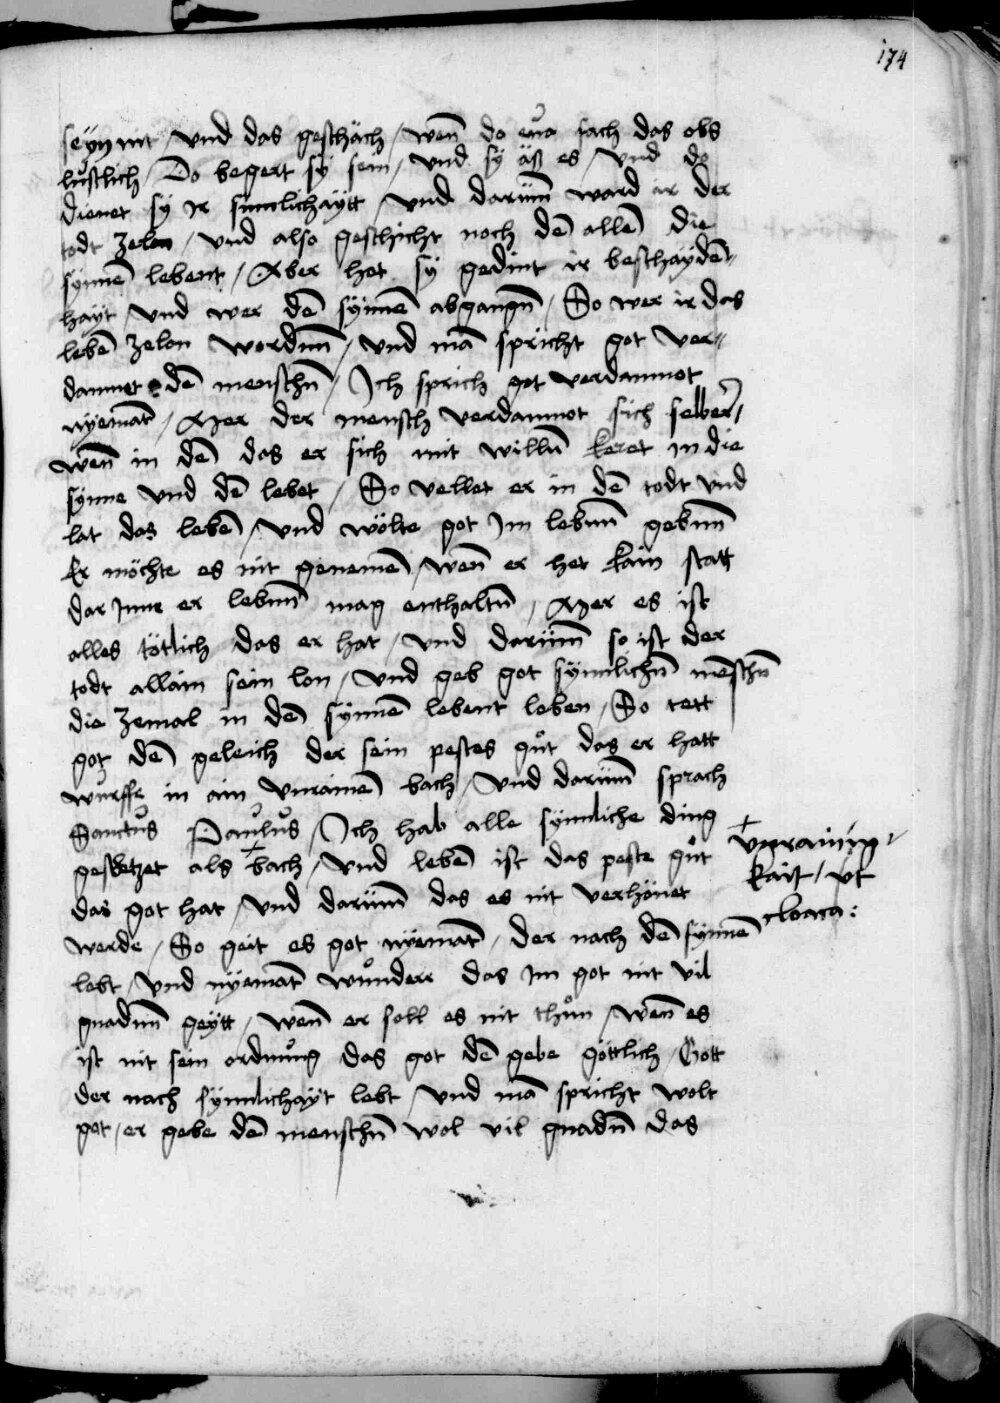 174
seyn nit / vnd das geschäch / wen̄ do eua sach das obs
lustlich / Do begert sy sein / vnd sy äß es / vnd do
dienet sy Ir sinnlichaytt / vnd darum̄ ward ir der
todt zelon / vnd also geschicht noch den̄ allen̄ die
synnen̄ lebent / Aber het sy gedint ir beschayden̄-
hayt / vnd wer den̄ synnen̄ abgangn̄ / So wer ir das
leben̄ zelon wordnn̄ / vnd mā spricht got ver-
damnet den̄ menschn̄ / Ich sprich got verdamnot
nyemant̄ / Mer der mensch verdamnot sich selber /
wen̄ in den̄ das er sich mit willn̄ keret in die
synne vnd den̄ lebet / So vellet er in den̄ todt vnd
lat das leben̄ / vnd wölte got Im lebnn̄ gebnn̄
Er möchte es nit genemen̄ / wen̄ er het kain statt
dar Inne er lebnn̄ mag enthaltn̄ / Mer es ist
alles tötlich das er hat / vnd darum̄ so ist der
todt allain sein lon / vnd geb got synnlichn̄ mēschn̄
die zemal in den̄ synnen̄ lebent leben / So tett
got den̄ geleich der sein pestes gůt das er hatt
wurffe in ain vnrainen̄ bach / vnd darum̄ sprach
Sanctus Paulus / Ich hab alle synnliche ding
geschetzet als + bach / vnd leben̄ ist das peste gůt
das got hat / vnd darum̄ das es nit verhönet
werde / So geit es got nyemant̄ / der nach den̄ synnen̄
lebt / vnd nyemant̄ wůnderr das Im got nit vil
gnadnn̄ geytt / wen̄ er soll es nit thůn / wen̄ es
ist nit sein ordnůng das got den̄ gebe göttlich Gott
der nach synnlichayt lebt / vnd mā spricht wolt
got / er gebe den̄ menschn̄ wol vil gnadn̄ das
+ vnrainig-
kait / vt
cloaca: